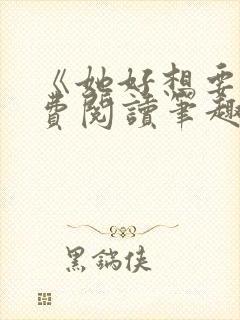 《她好想要
費閱讀筆趣
黑鍋俠